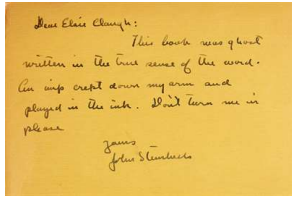 Dear Elsie Clough:
This book was ghost
written in the true sense of the word.
An imp crept down my arm and
played in the ink. Don't turn me in
please
Yours
John Steinbeck